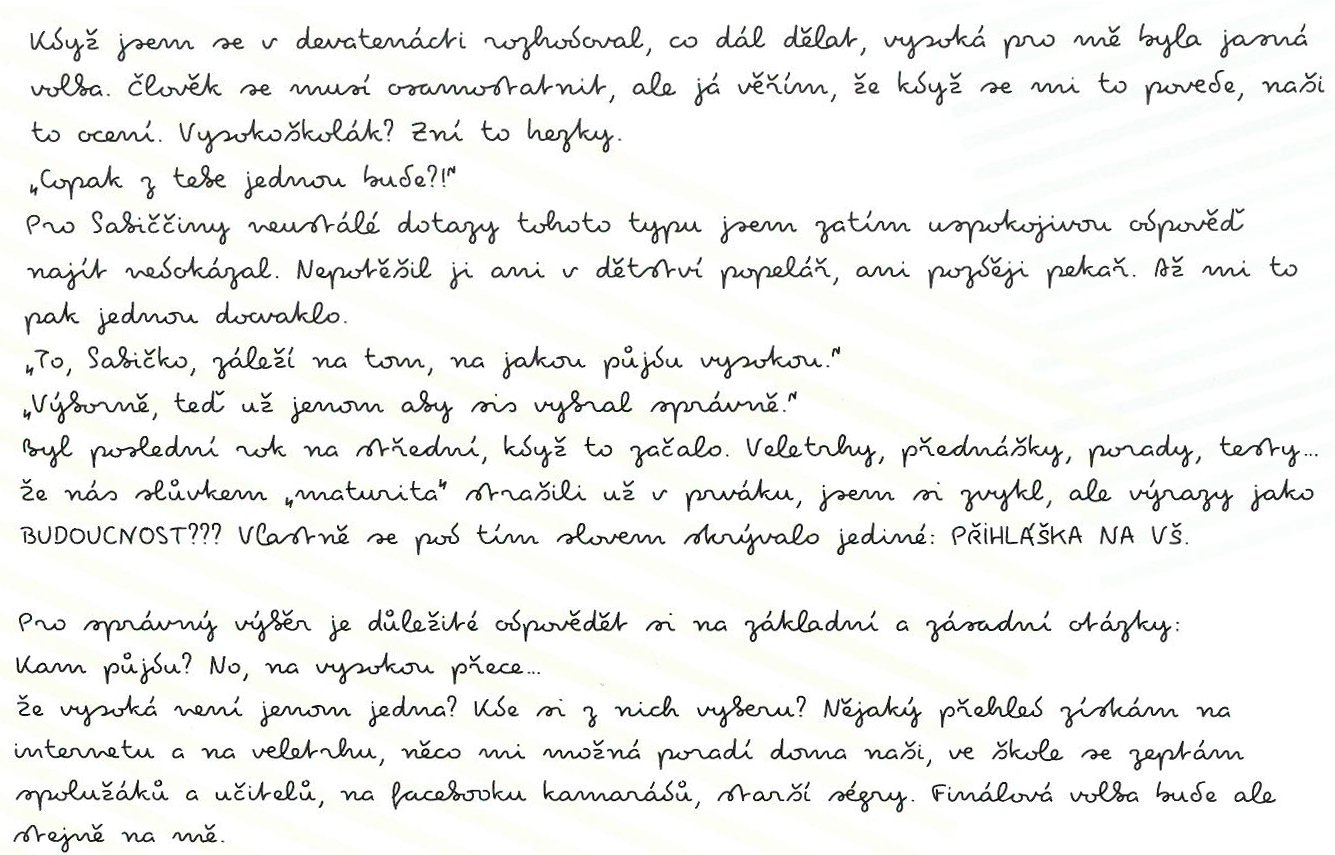 Když jsem se v devatenácti rozhodoval, co dál dělat, vysoká pro mě byla jasná
volba. Člověk se musí osamostatnit, ale já věřím, že když se mi to povede, naši
to ocení. Vysokoškolák? Zní to hezky.
„Copak z tebe jednou bude?!"
Pro babiččiny neustálé dotazy tohoto typu jsem zatím uspokojivou odpověď
najít nedokázal. Nepotěšil ji ani v dětství popelář, ani později pekař. Až mi to
pak jednou docvaklo.
„To, babičko, záleží na tom, na jakou půjdu vysokou."
„Výborně, teď už jenom aby sis vybral správně."
Byl poslední rok na střední, když to začalo. Veletrhy, přednášky, porady, testy...
že nás slůvkem „maturita" strašili už v prváku, jsem si zvykl, ale výrazy jako
BUDOUCNOST??? Vlastně se pod tím slovem skrývalo jediné: PŘIHLÁŠKA NA VŠ.

Pro správný výběr je důležité odpovědět si na základní a zásadní otázky:
Kam půjdu? No, na vysokou přece...
že vysoká není jenom jedna? Kde si z nich vyberu? Nějaký přehled získám na
internetu a na veletrhu, něco mi možná poradí doma naši, ve škole se zeptám
spolužáků a učitelů, na facebooku kamarádů, starší ségry. Finálová volba bude ale
stejně na mě.